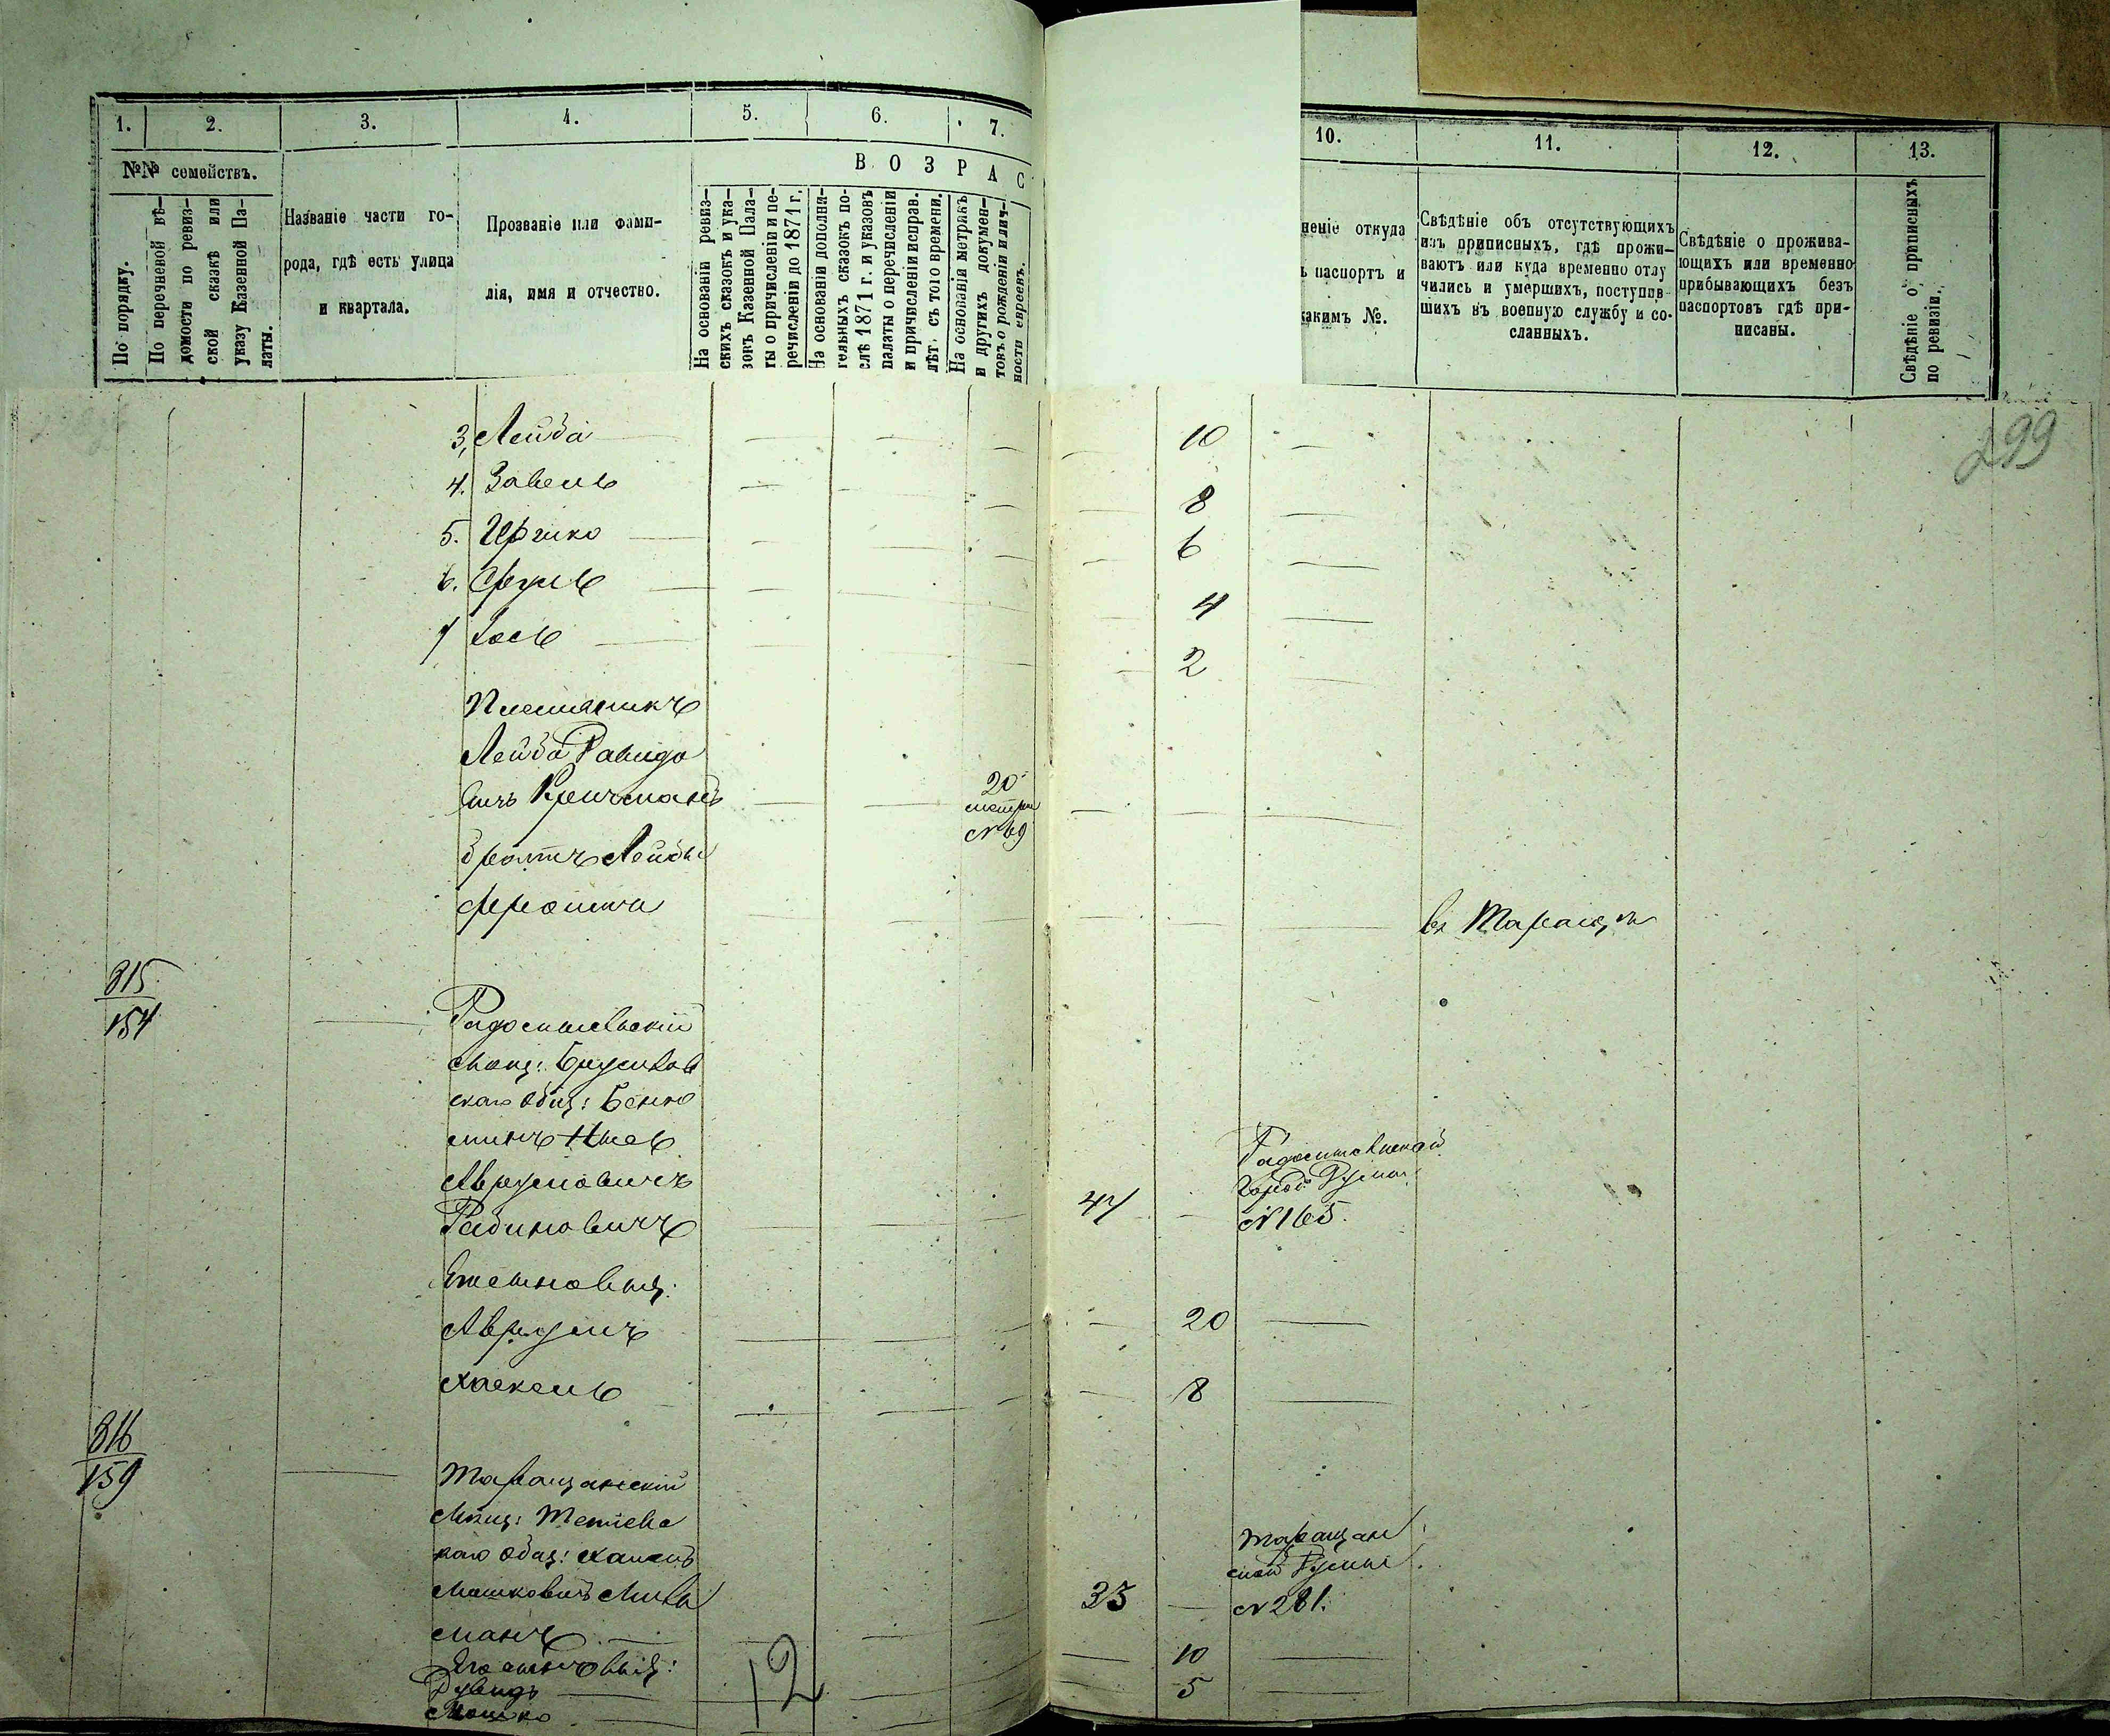 1. 2. 3. 4. 5. 6. 7. 10. 11. 12. 13.
№№ семействъ.
По порядку.
По перечневой вѣ-
домости по ревиз-
ской сказкѣ или
указу Казенной Па-
латы.
Названіе части го-
рода, гдѣ есть улица
и квартала.
Прозваніе или фами-
лія, имя и отчество.
ВОЗРАС
На основаніи ревиз-
скихъ сказокъ и ука-
зовъ Казенной Пала-
ты о причисленіи и пе-
речисленіи до 1871 г.
На основаніи дополни-
тельныхъ сказокъ по-
слѣ 1871 г. и указовъ
палаты о перечисленіи
и причисленіи исправ.
лѣт. съ того времени.
На основаніи метрикъ
и другихъ докумен-
товъ о рожденіи и лич-
ности евреевъ.
неніе откуда
ь паспортъ и
какимъ №.
Свѣдѣніе объ отсутствующихъ
изъ приписныхъ, гдѣ прожи-
ваютъ или куда временно отлу
чились и умершихъ, поступив-
шихъ въ военную службу и со-
сланныхъ.
Свѣдѣніе о прожива-
ющихъ или временно
прибывающихъ безъ
паспортовъ гдѣ при-
писаны.
Свѣдѣніе о приписныхъ
по ревизіи.
299
3, Лейба 10
4. Завель 8
5. Ицко 6
6. Сруль 4
7 Іось 2
Племянникъ
Лейба Давидо
вичъ Кречманъ
20
метри
№ 69
братъ Лейбы
Фроимъ
въ Тараще
315
154
Радомысльский
мѣщ: Брусилов
скаго общ: Беню
минъ
Аврумовичъ
Рабиновичъ
47
Радомысльской
Город: Думы
№ 165.
Его сыновья:
Аврумъ 20
Хаскель 8
316
159
Таращанскій
Мѣщ: Тетіевс
каго общ: Хаимъ
Мошковичъ
манъ
33
Таращан
ской Думы
№ 281.
Его сыновья:
Дувидъ 10
Мошко 5
12